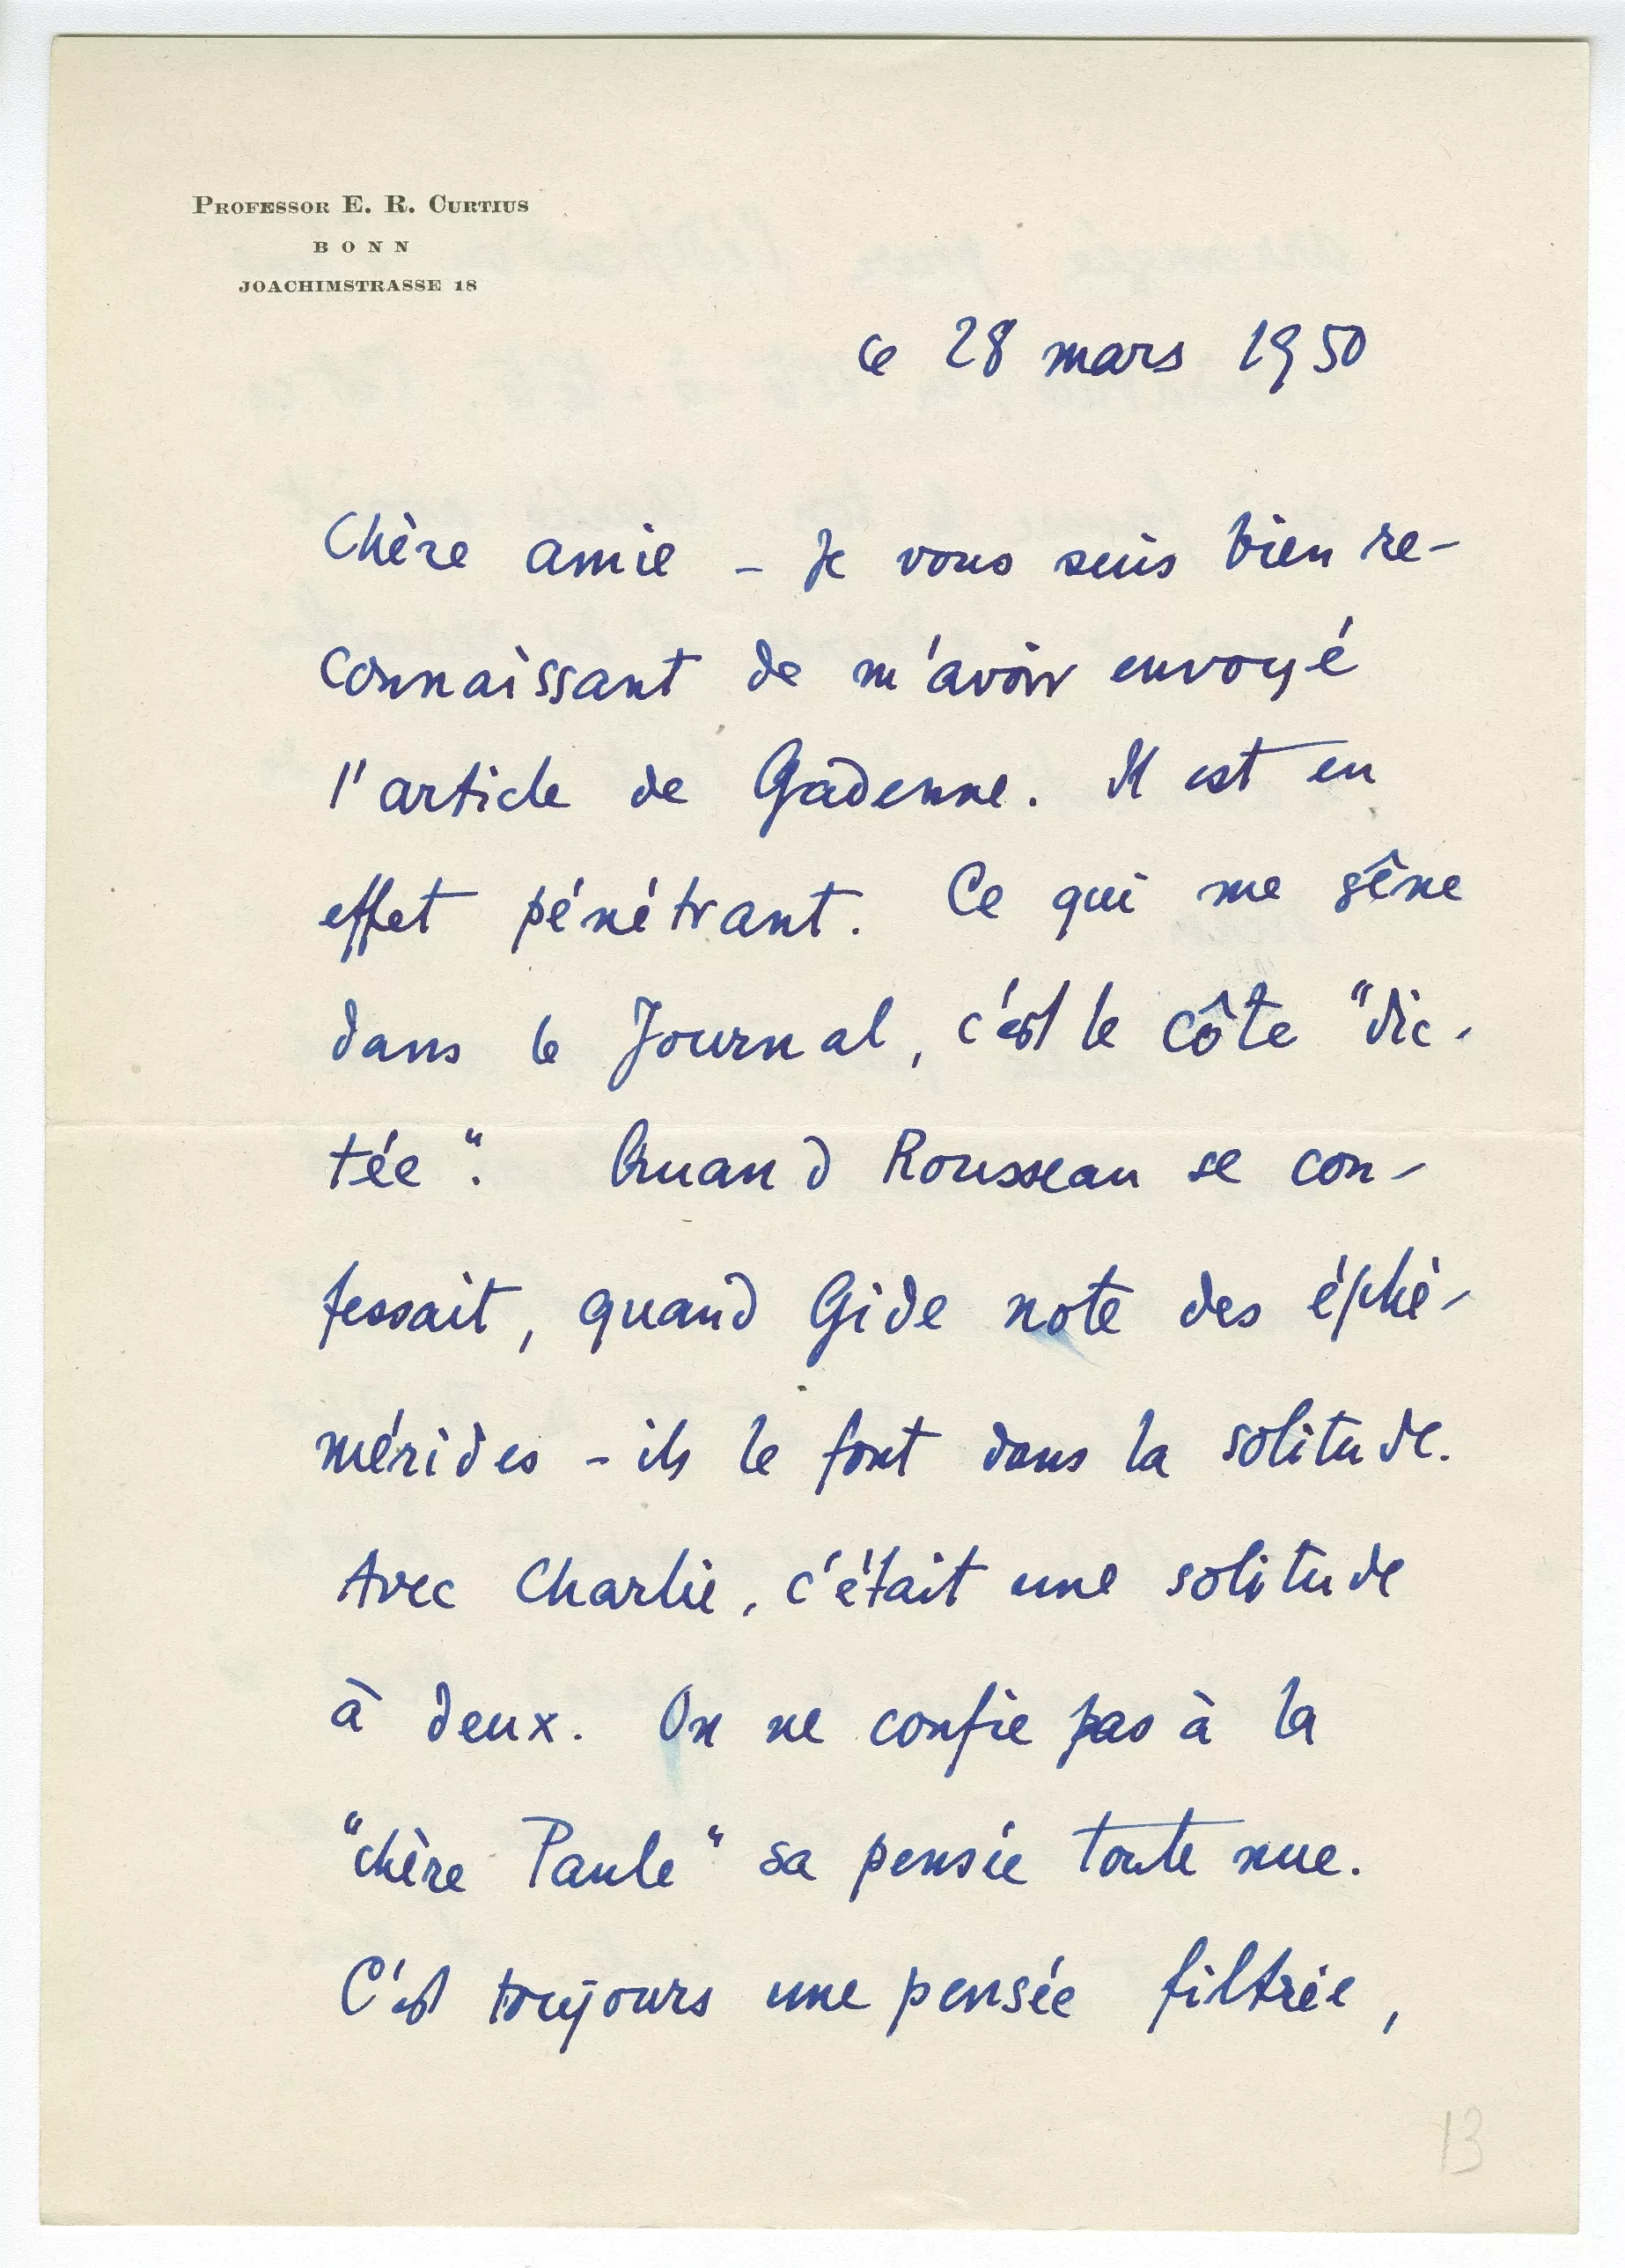 PROFESSOR E. R. CURTIUS
BONN
JOACHIMSTRASSE 18
ce 28 mars 1950
Chère amie – Je vous suis bien re-
connaissant de m'avoir envoyé
l'article de Gadenne. Il est en
effet pénétrant. Ce qui me gêne
dans le Journal, c'est le côté "dic-
tée". Quand Rousseau se con-
fessait, quand Gide note des éphé-
mérides – ils le font dans la solitude.
Avec Charlie, c'était une solitude
à deux. On ne confie pas à la
"chère Paule" sa pensée toute nue.
C'est toujours une pensée filtrée,
13